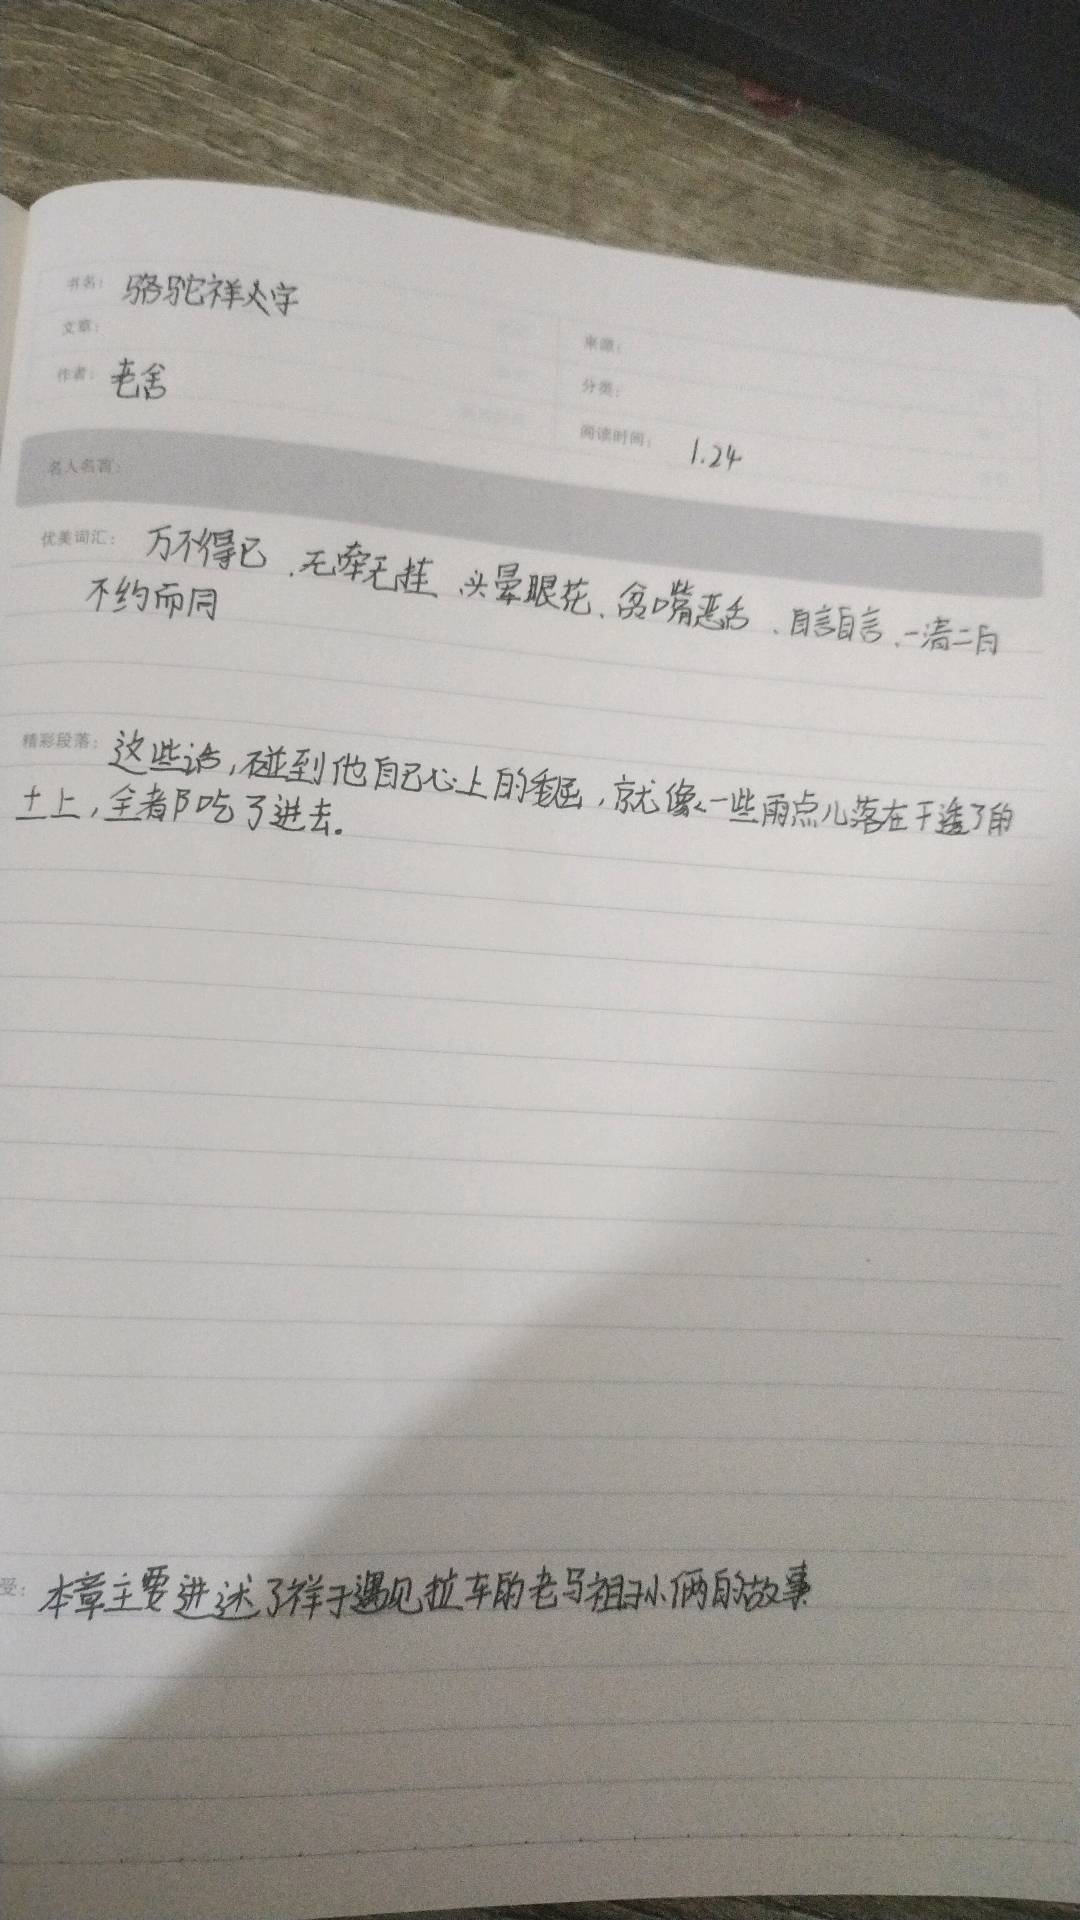 书名： 骆驼祥子
文章：
来源：
作者： 老舍
分类：
阅读时间： 1.24
名人名言：
优美词汇： 万不得已、无牵无挂、头晕眼花、贫嘴恶舌、自言自言、一清二白
不约而同
精彩段落： 这些话，碰到他自己心上的委屈，就像一些雨点儿落在干透了的
土上，全都吃了进去。
受： 本章主要讲述了祥子遇见拉车的老马祖孙俩的故事